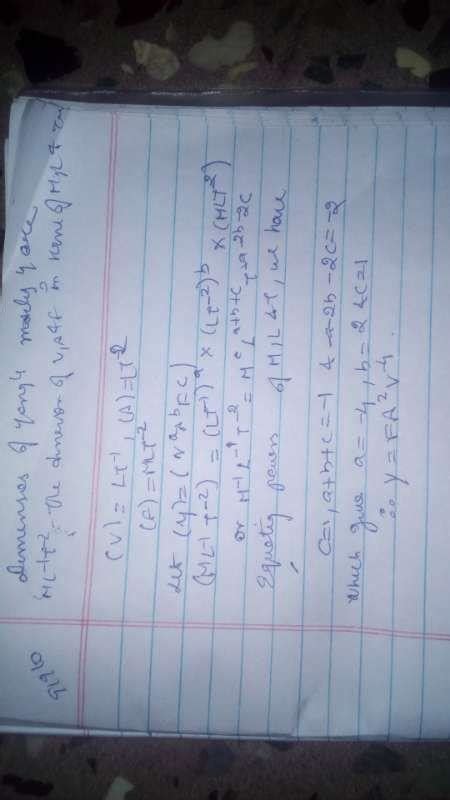 Dimension of Young's modulus Y are
ML⁻¹T⁻² The dimension of V, A & F in terms of M, L & T
(V) = LT⁻¹, (A) = LT⁻²
(F) = MLT⁻²
Let (Y) = (VᵃAᵇFC)
(ML⁻¹T⁻²) = (LT⁻¹)ᵃ × (LT⁻²)ᵇ × (MLT⁻²)
or M¹L⁻¹T⁻² = Mᶜ Lᵃ⁺ᵇ⁺ᶜ T⁻ᵃ⁻²ᵇ⁻²ᶜ
Equating powers of M, L & T, we have
C=1, a+b+c=-1 & -a-2b-2c=-2
which give a=-4, b=2 & c=1
∴ Y = FA²V⁻⁴.